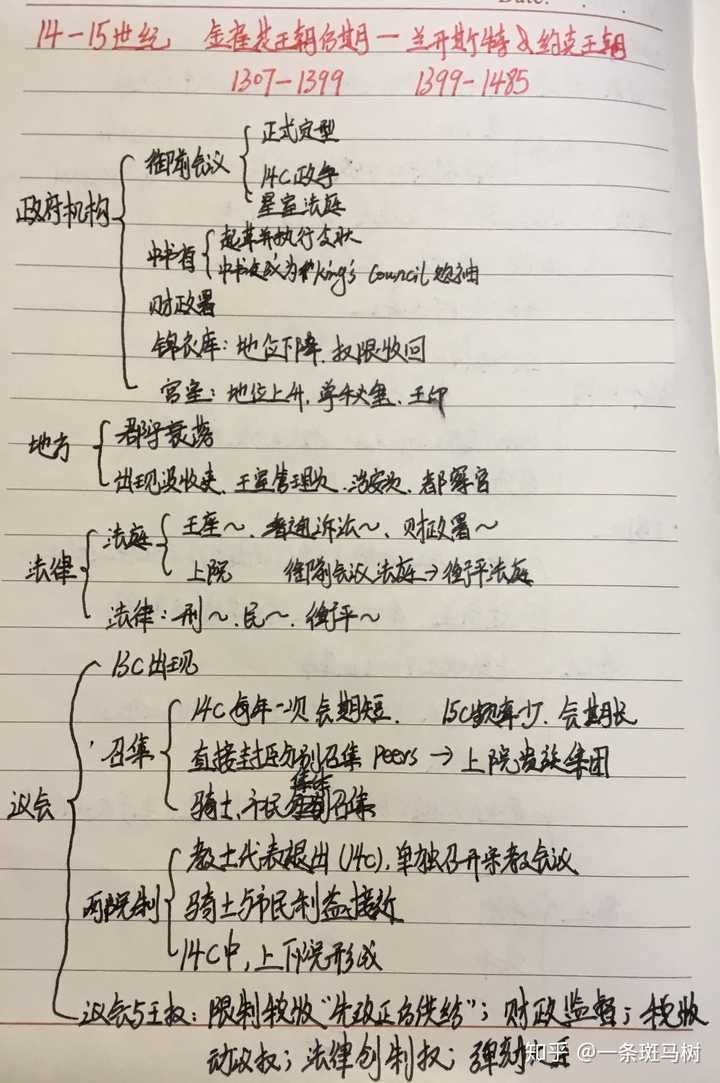 Date:
14-15世纪 金雀花王朝后期-兰开斯特&约克王朝
1307-1399 1399-1485
政府机构
御前会议
正式定型
14C政争
星室法庭
中书省
起草并执行文状
中书变成为King's Council 的轴
财政署
锦衣库:地位下降,权限收回
宫室:地位上升,掌私玺、王印
地方
郡守衰落
出现没收吏、王室管理员、治安官、都察官
法律
法庭
王座~、普通诉法~、财政署~
上院 御前会议法庭→衡平法庭
法律:刑~、民~、衡平~
议会
13C出现
召集
14C每年一次 会期短. 15C频率少、会期长
直接封臣分别召集 Peers → 上院贵族集团
集体
骑士、市民召集
两院制
教士代表退出(14C),单独召开宗教会议
骑士与市民利益接近
14C中,上下院形成
议会与王权:限制税收"先改正后供给";财政监督;税收
动议权;法律创制权;弹劾
知乎 @一条斑马树